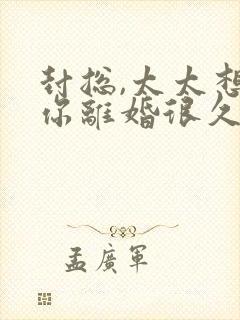 封总,太太想
你離婚很久
孟廣軍